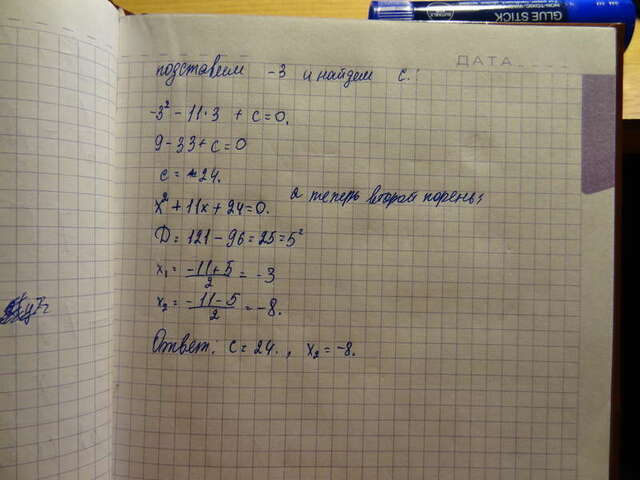 GLUE STICK
ДАТА
подставим -3 и найдем с.:
-3² - 11·3 + c = 0.
9 - 33 + c = 0
c = 24.
x² + 11x + 24 = 0. а теперь второй корень:
D = 121 - 96 = 25 = 5²
x₁ = (-11+5)/2 = -3
x₂ = (-11-5)/2 = -8.
Ответ: c = 24., x₂ = -8.